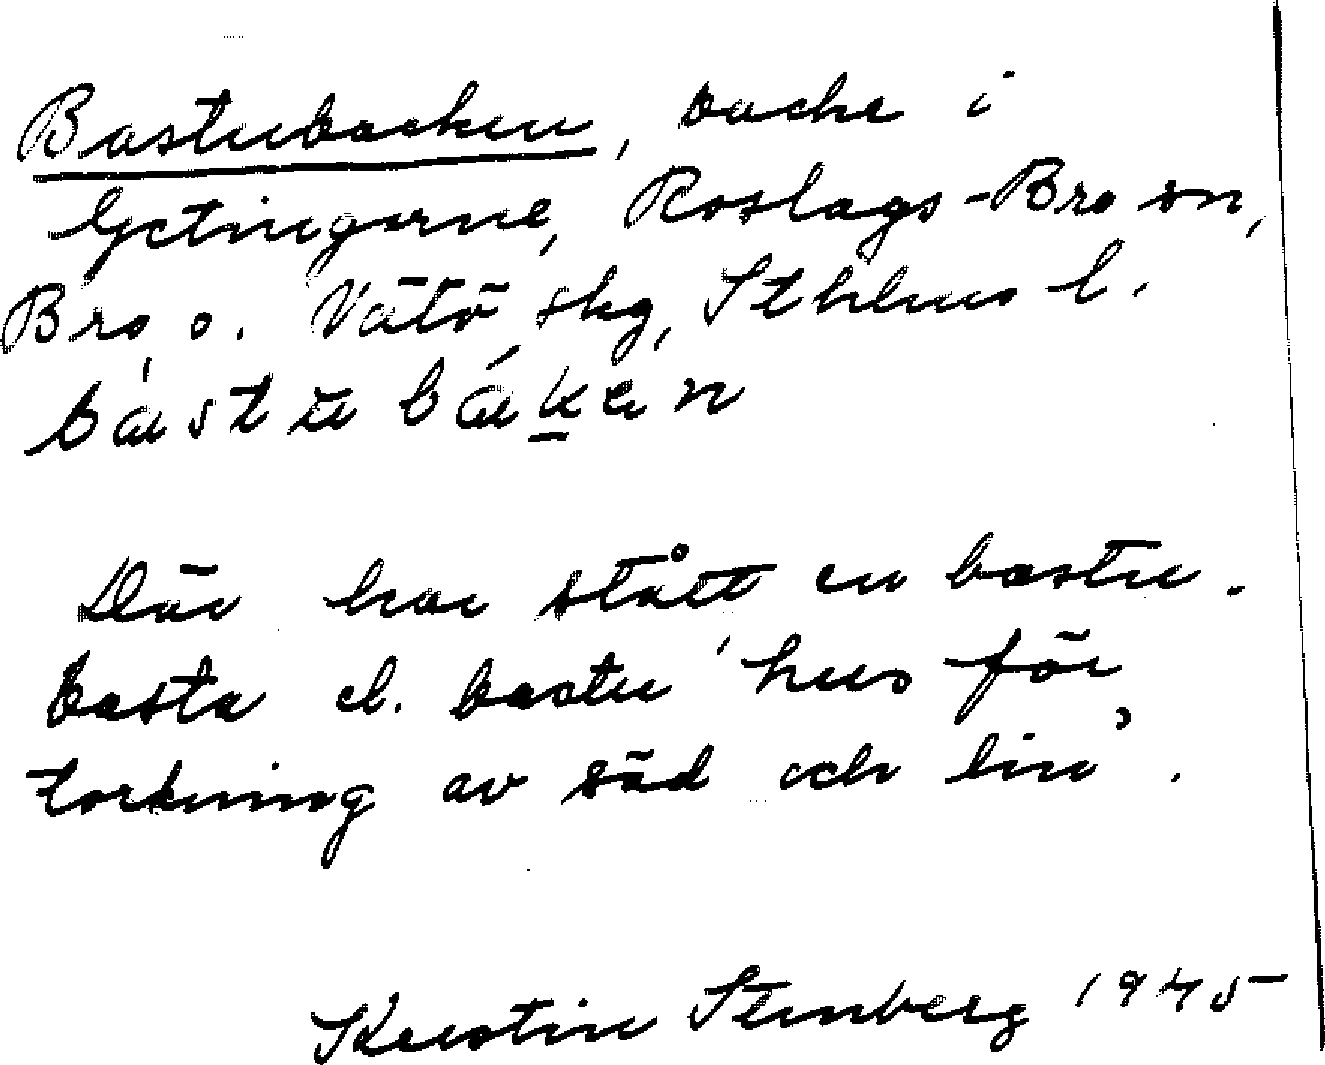 Bastubacken, backe i
Getingarne, Roslags-Bro sn,
Bro o. Vätö skg, Sthlms l.
bástubáken
Där har stått en bastu.
basta el. bastu 'hus för
torkning av säd och lin'.
Kerstin Stenberg 1945